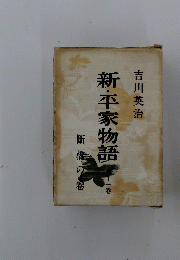 吉川英治
新・平家物語
十一巻
断橋の巻